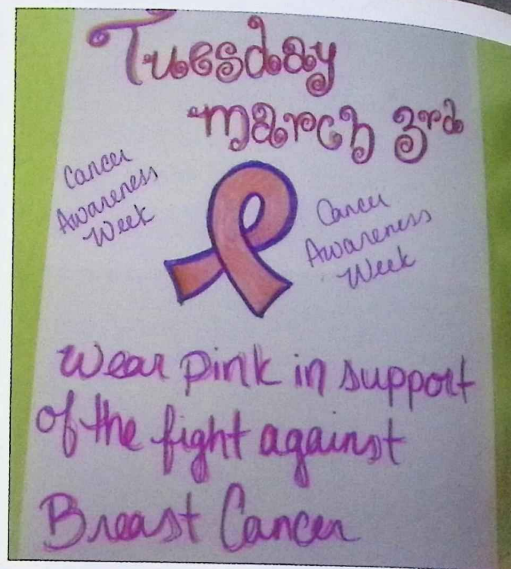 Tuesday
March 3rd
Cancer
Awareness
Week
Cancer
Awareness
Week
Wear pink in support
of the fight against
Breast Cancer